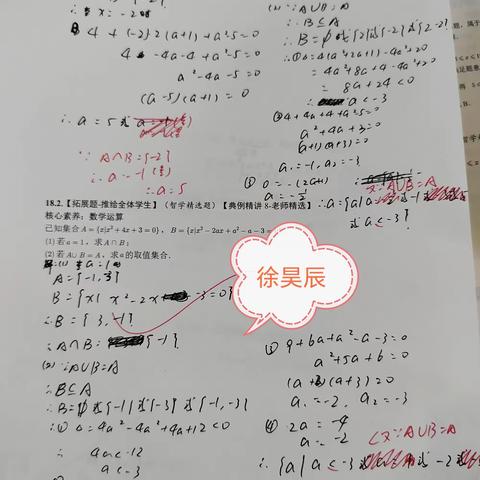 ∴当x=-2时
4+(-2)2(a+1)+a²-5=0
4-4a-4+a²-5=0
a²-4a-5=0
(a-5)(a+1)=0
∴a=5或
∵A∩B={-2}
∴a=-1(舍)
∴a=5
(2)∵A∪B=A
∴B⊆A
∴B=∅或{2}或{-2}或{2,-2}
=4a²+8a+4-4a²+20
=8a+24<0
∴a<-3
②4+4a+4+a²-5=0
a²+4a+3=0
(a+1)(a+3)=0
a₁=-1,a₂=-3
③0=-(2a+1)
又∵A∪B=A
或a<-3}
18.2.【拓展题-推给全体学生】(智学精选题)【典例精讲8-老师精选】
核心素养:数学运算
已知集合A={x|x²+4x+3=0},B={x|x²-2ax+a²-a-3=
(1)若a=1,求A∩B;
(2)若A∪B=A,求a的取值集合.
A={-1,3}
B={x|x²-2x-3=0}
∴B={3,-1}
∴A∩B={-1}
(2)∵A∪B=A
∴B⊆A
∴B=∅或{-1}或{-3}或{-1,-3}
∴①Δ=4a²-4a²+4a+12<0
4a<-12
a<-3
徐昊辰
③9+6a+a²-a-3=0
a²+5a+6=0
(a+2)(a+3)=0
a₁=-2,a₂=-3
④2a=-4
a=-2
又∵A∪B=A
∴{a|a<-3或